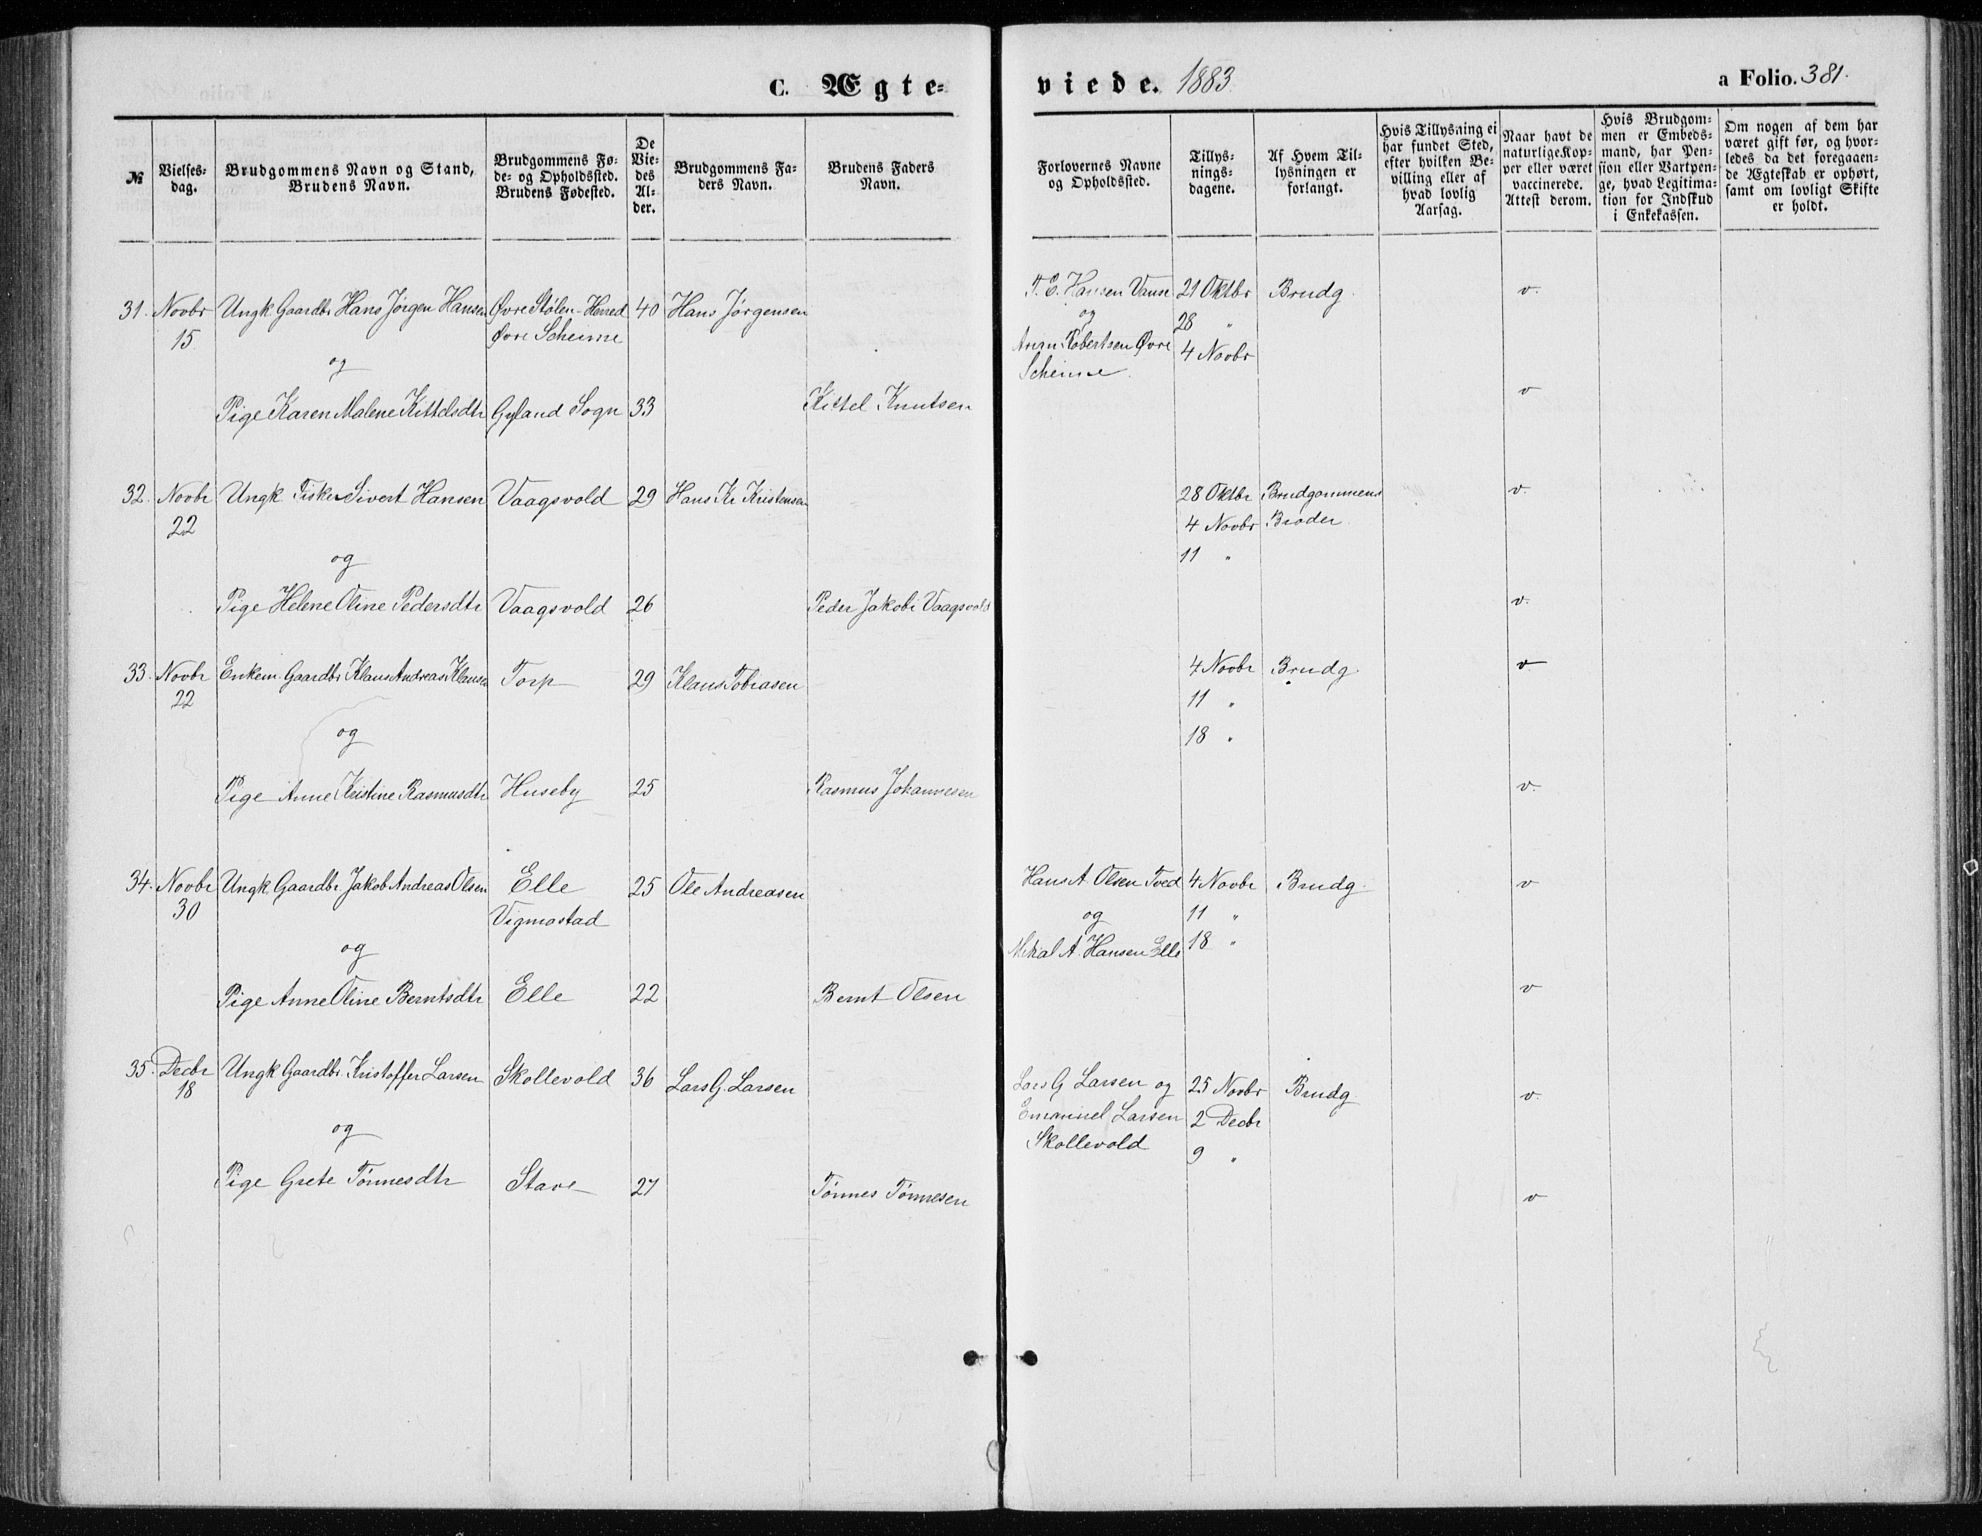 C. Ægte-
viede. 1883.
a Folio. 381.
№
Vielses-
dag.
Brudgommens Navn og Stand,
Brudens Navn.
Brudgommens Fø-
de- og Opholdssted.
Brudens Fødested.
De
Vie-
des
Al-
der.
Brudgommens Fa-
ders Navn.
Brudens Faders
Navn.
Forlovernes Navne
og Opholdssted.
Tillys-
nings-
dagene.
Af Hvem Til-
lysningen er
forlangt.
Hvis Tillysning ei
har fundet Sted,
efter hvilken Be-
villing eller af
hvad lovlig
Aarsag.
Naar havt de
naturlige Kop-
per eller været
vaccinerede.
Attest derom.
Hvis Brudgom-
men er Embeds-
mand, har Pen-
sion eller Vartpen-
ge, hvad Legitima-
tion for Indskud
i Enkekassen.
Om nogen af dem har
været gift før, og hvor-
ledes da det foregaaen-
de Ægteskab er ophørt,
samt om lovligt Skifte
er holdt.
31. Novbr Ungk Gaardbr Hans Jørgen Hansen Øvre Stølen-Herred 40 Hans Jørgensen
15. Øvre Scheime
og
Pige Karen Malene Kittelsdtr Gyland Sogn 33 Kittel Knutsen
T. E. Hansen Vanse 21 Oktbr Brudg. v.
og 28 "
Robertsen Øvre 4 Novbr
Scheime.
v
32. Novbr Ungk Fisker Sivert Hansen Vaagsvold 29 Hans Kr Kristensen
22
og
Pige Helene Oline Pedersdtr Vaagsvold 26 Peder Jakobs Vaagsvold
28 Oktbr Brudgommens v.
4 Novbr Broder.
11 "
v.
33. Novbr Enkem. Gaardbr Klaus Andreas Klausen Torp 29 Klaus Tobiasen
22
og
Pige Anne Kristine Rasmusdtr Huseby 25 Rasmus Johannesen
4 Novbr Brudg. v
11 "
18 "
v.
34. Novbr Ungk. Gaardbr Jakob Andreas Olsen Elle 25 Ole Andreasen
30 Vigmostad
og
Pige Anne Oline Berntsdtr Elle 22 Bernt Olsen
Hans A. Olsen Tved 4 Novbr Brudg. v
og 11 "
Mikal A. Hansen Elle 18 "
v
35. Decbr Ungk Gaardbr Kristoffer Larsen Skollevold 36 Lars G. Larsen
18
og
Pige Grete Tønnesdtr Stave 27 Tønnes Tønnesen
Lars G Larsen og 25 Novbr Brudg v.
Emanuel Larsen 2 Decbr
Skollevold 9 "
v